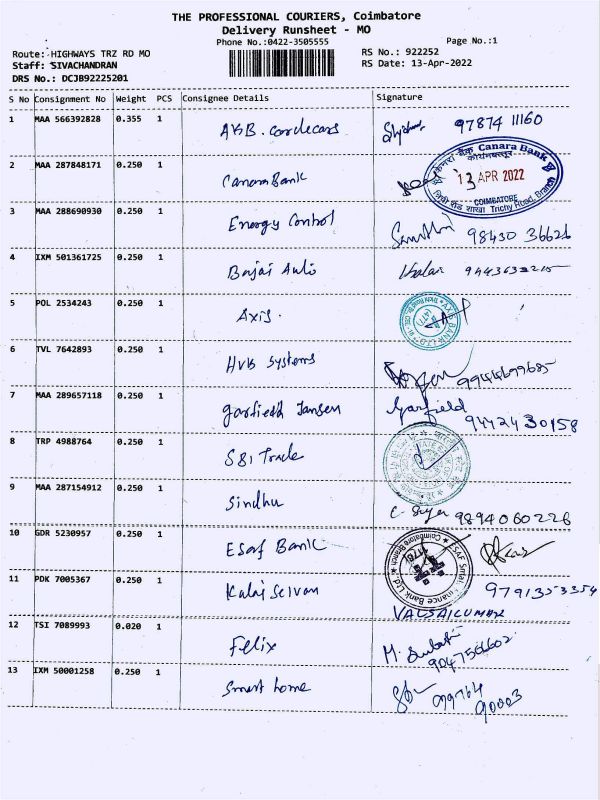 THE PROFESSIONAL COURIERS, Coimbatore
Delivery Runsheet - MO
Phone No.:0422-3505555
Page No.:1
Route: HIGHWAYS TRZ RD MO
RS No.: 922252
Staff: SIVACHANDRAN
RS Date: 13-Apr-2022
DRS No.: DCJB92225201
S No Consignment No Weight PCS Consignee Details Signature
1 MAA 566392828 0.355 1 97874 11160
2 MAA 287848171 0.250 1 Canara Bank
Canara Bank
13 APR 2022
COIMBATORE
Trichy Road, Branch
3 MAA 288690930 0.250 1 Energy Control 98430 36626
4 IXM 501361725 0.250 1 Bajaj Auto
5 POL 2534243 0.250 1 Axis.
6 TVL 7642893 0.250 1 HVB Systems 9944699685
7 MAA 289657118 0.250 1 Jansen Garfield
9442430158
8 TRP 4988764 0.250 1 SBI Trade
9 MAA 287154912 0.250 1 Sindhu 9894060226
10 GDR 5230957 0.250 1 Esaf Bank
Coimbatore Branch
11 PDK 7005367 0.250 1 Kalai Selvan 9791353354
VALSALKUMAR
12 TSI 7089993 0.020 1 Felix
9047566602
13 IXM 50001258 0.250 1 Smart home 99764
90003